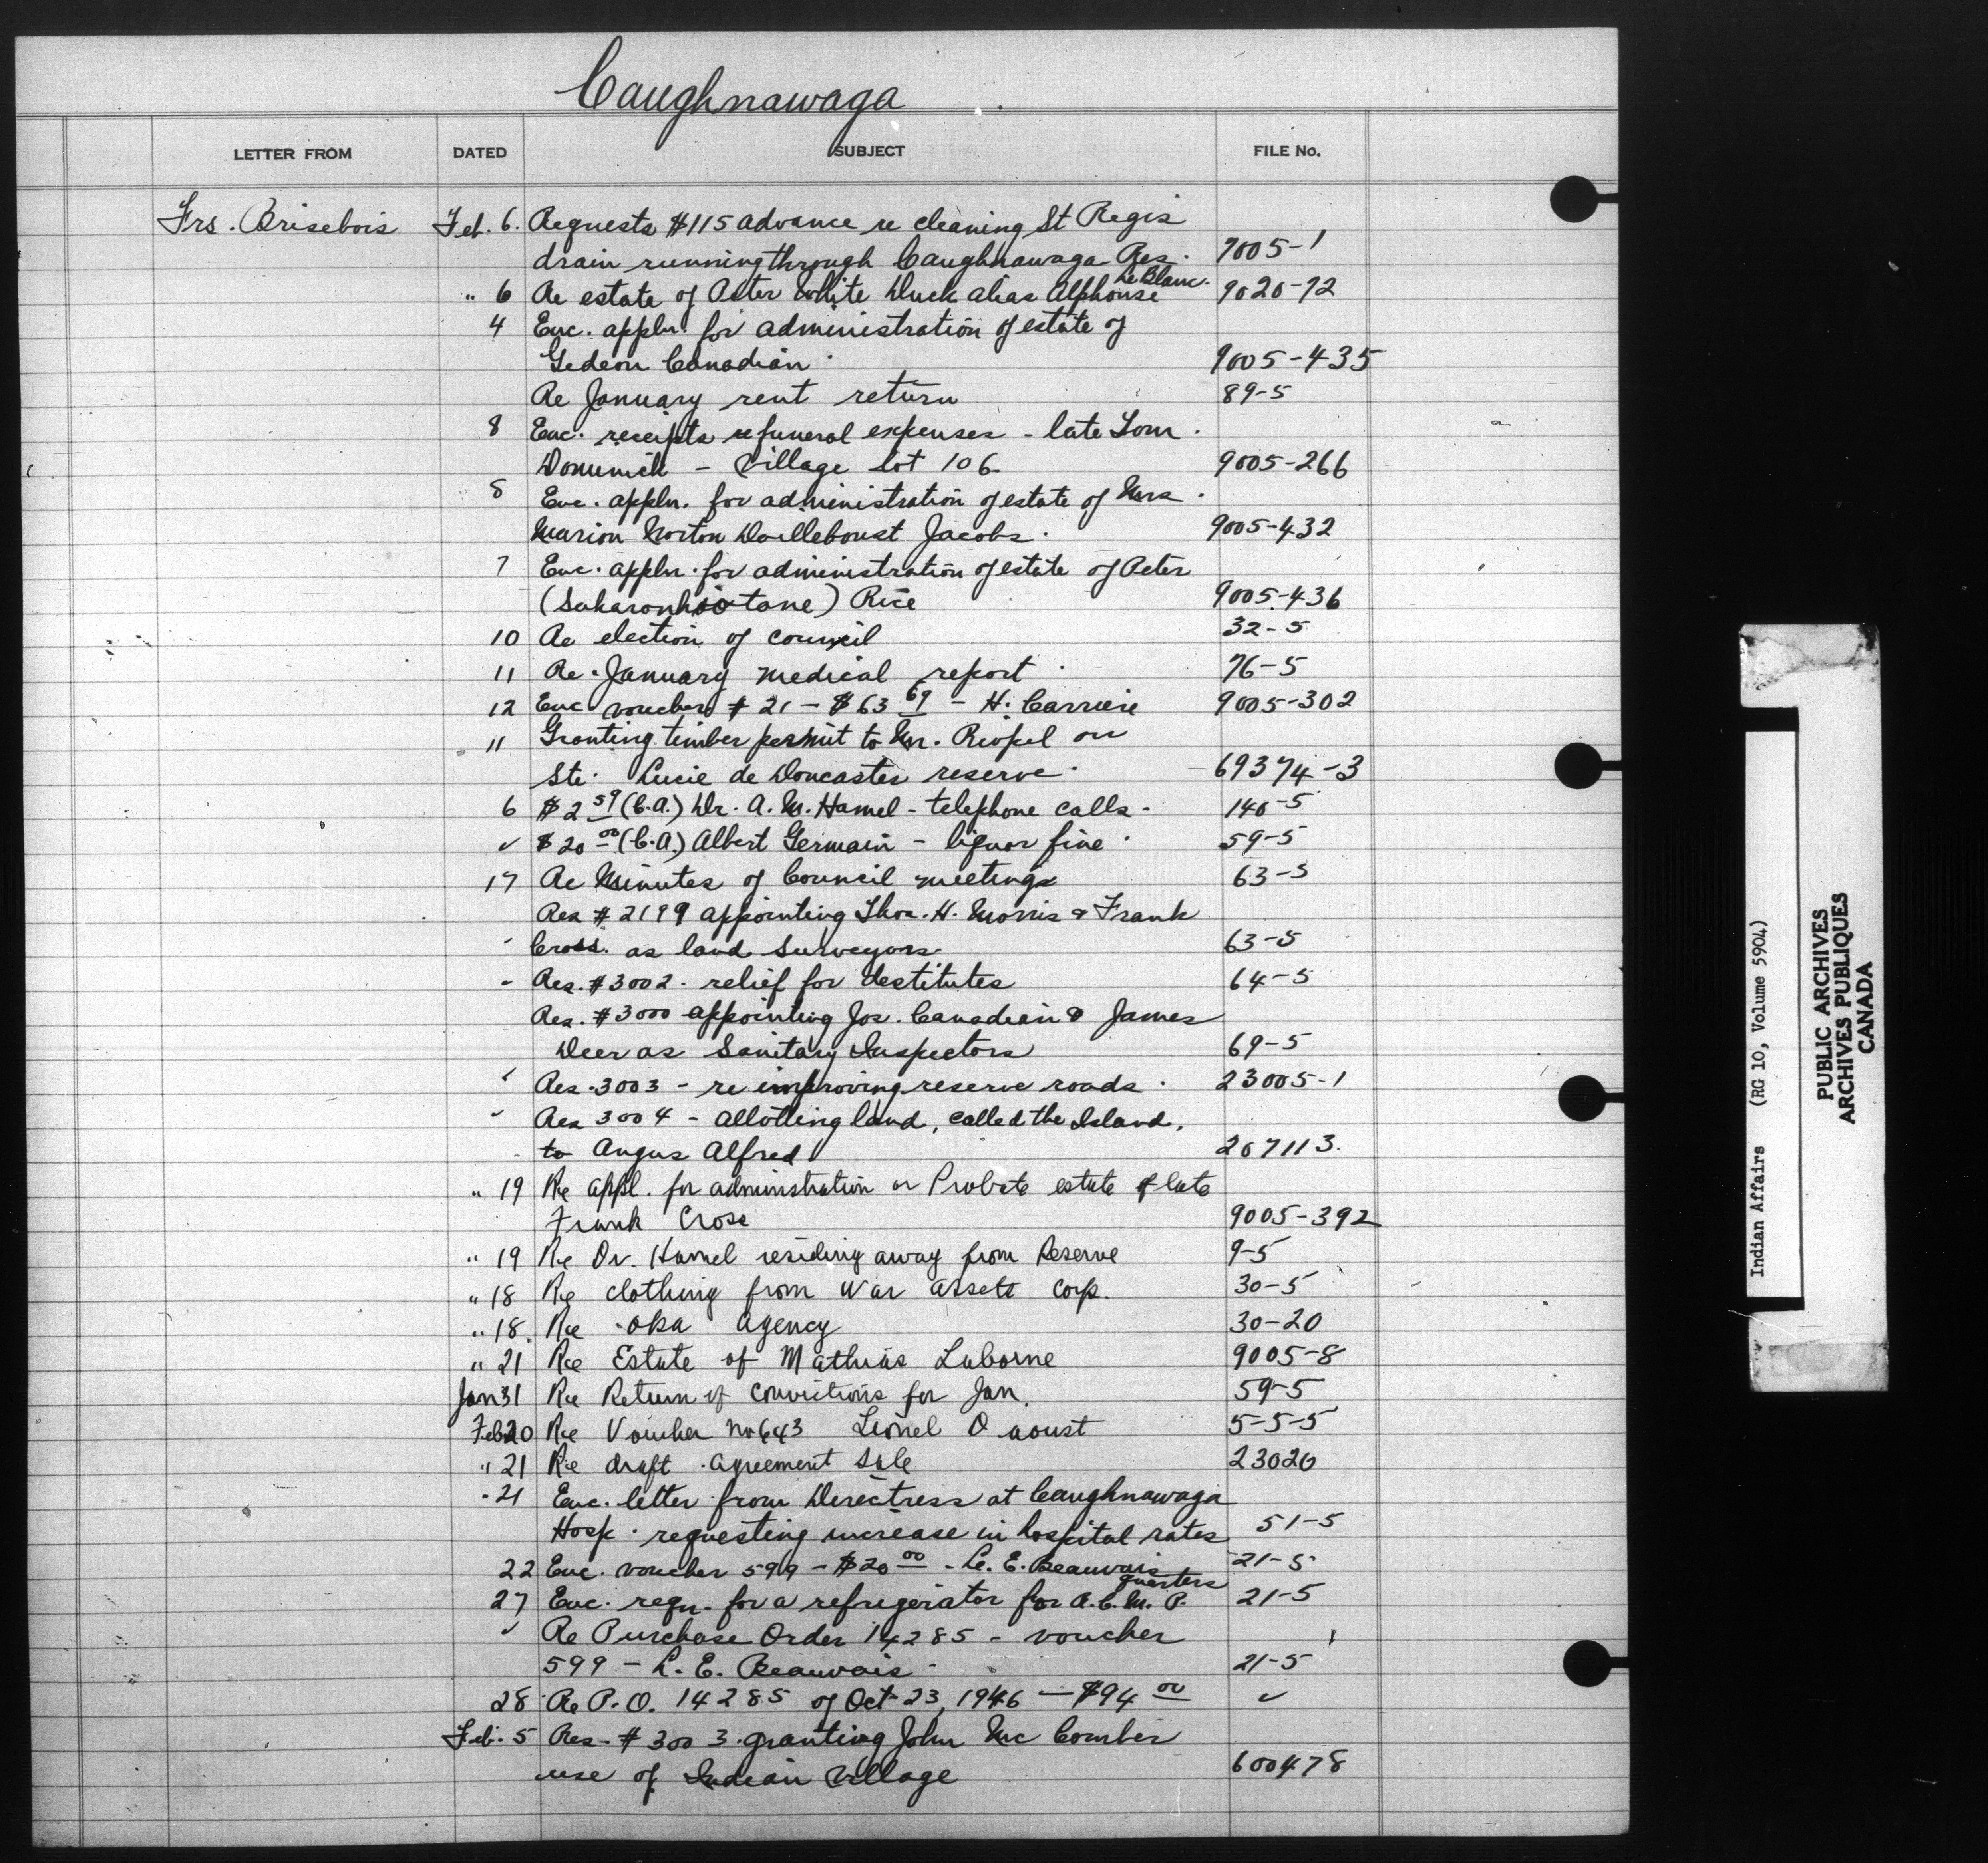 Caughnawaga
LETTER FROM DATED SUBJECT FILE No.
Frs. Brisebois Feb. 6. Requests $115 advance re cleaning St Regis
drain running through Caughnawaga Res. 7005-1
Le Blanc.
" 6 Re estate of Peter White Duck alias Alphonse 9020-72
4 Enc. appln. for administration of estate of
Gedeon Canadian. 9005-435
Re January rent return 89-5
8 Enc. receipts re funeral expenses - late Tom.
- Village Lot 106 9005-266
8 Enc. appln. for administration of estate of Mrs.
Marion Norton Dailleboust Jacobs. 9005-432
7 Enc. appln. for administration of estate of Peter
(Saharonhiotane) Rice 9005-436
10 Re election of council 32-5
11 Re. January medical report. 76-5
12 Enc voucher # 21 - $63 69 - H. Carriere 9005-302
11 Granting timber permit to Mr. Riopel on
Ste. Lucie de Doncaster reserve. 69374-3
6 $2 59 (C.A.) Dr. A. M. Hamel - telephone calls. 140-5
✓ $20 00 (C.A.) Albert Germain - liquor fine. 59-5
17 Re Minutes of Council meetings 63-5
Res # 2199 appointing Thos. H. Morris & Frank
Cross. as land Surveyors 63-5
Res. #3002. relief for destitutes 64-5
Res. #3000 appointing Jos. Canadian & James
Deer as Sanitary Inspectors 69-5
Res. 3003 - re improving reserve roads. 23005-1
Res 3004 - Allotting land, called the Island,
to Angus Alfred 267113.
" 19 Re appl. for administration or Probate estate of late
Frank Cross 9005-392
" 19 Re Dr. Hamel residing away from Reserve 9-5
" 18 Re clothing from War Assets Corp. 30-5
" 18. Re Oka Agency 30-20
" 21 Re Estate of Mathias Laborne 9005-8
Jan 31 Re Return of Convictions for Jan. 59-5
Feb 20 Re Voucher No 643 Lionel D aoust 5-5-5
" 21 Re draft agreement Sale 23020
" 21 Enc. letter from Directress at Caughnawaga
Hosp. requesting increase in hospital rates 51-5
22 Enc. voucher 599 - $20 00 - L. E. Beauvais 21-5
quarters
27 Enc. reqn. for a refrigerator for R.C.M.P. 21-5
✓ Re Purchase Order 14285 - voucher
599 - L. E. Beauvais. 21-5
28 Re P.O. 14285 of Oct 23, 1946 - $94 00 ✓
Feb. 5 Res - # 3003. granting John Mc Comber
use of Indian Village 600478
Indian Affairs (RG 10, Volume 5904)
PUBLIC ARCHIVES
ARCHIVES PUBLIQUES
CANADA